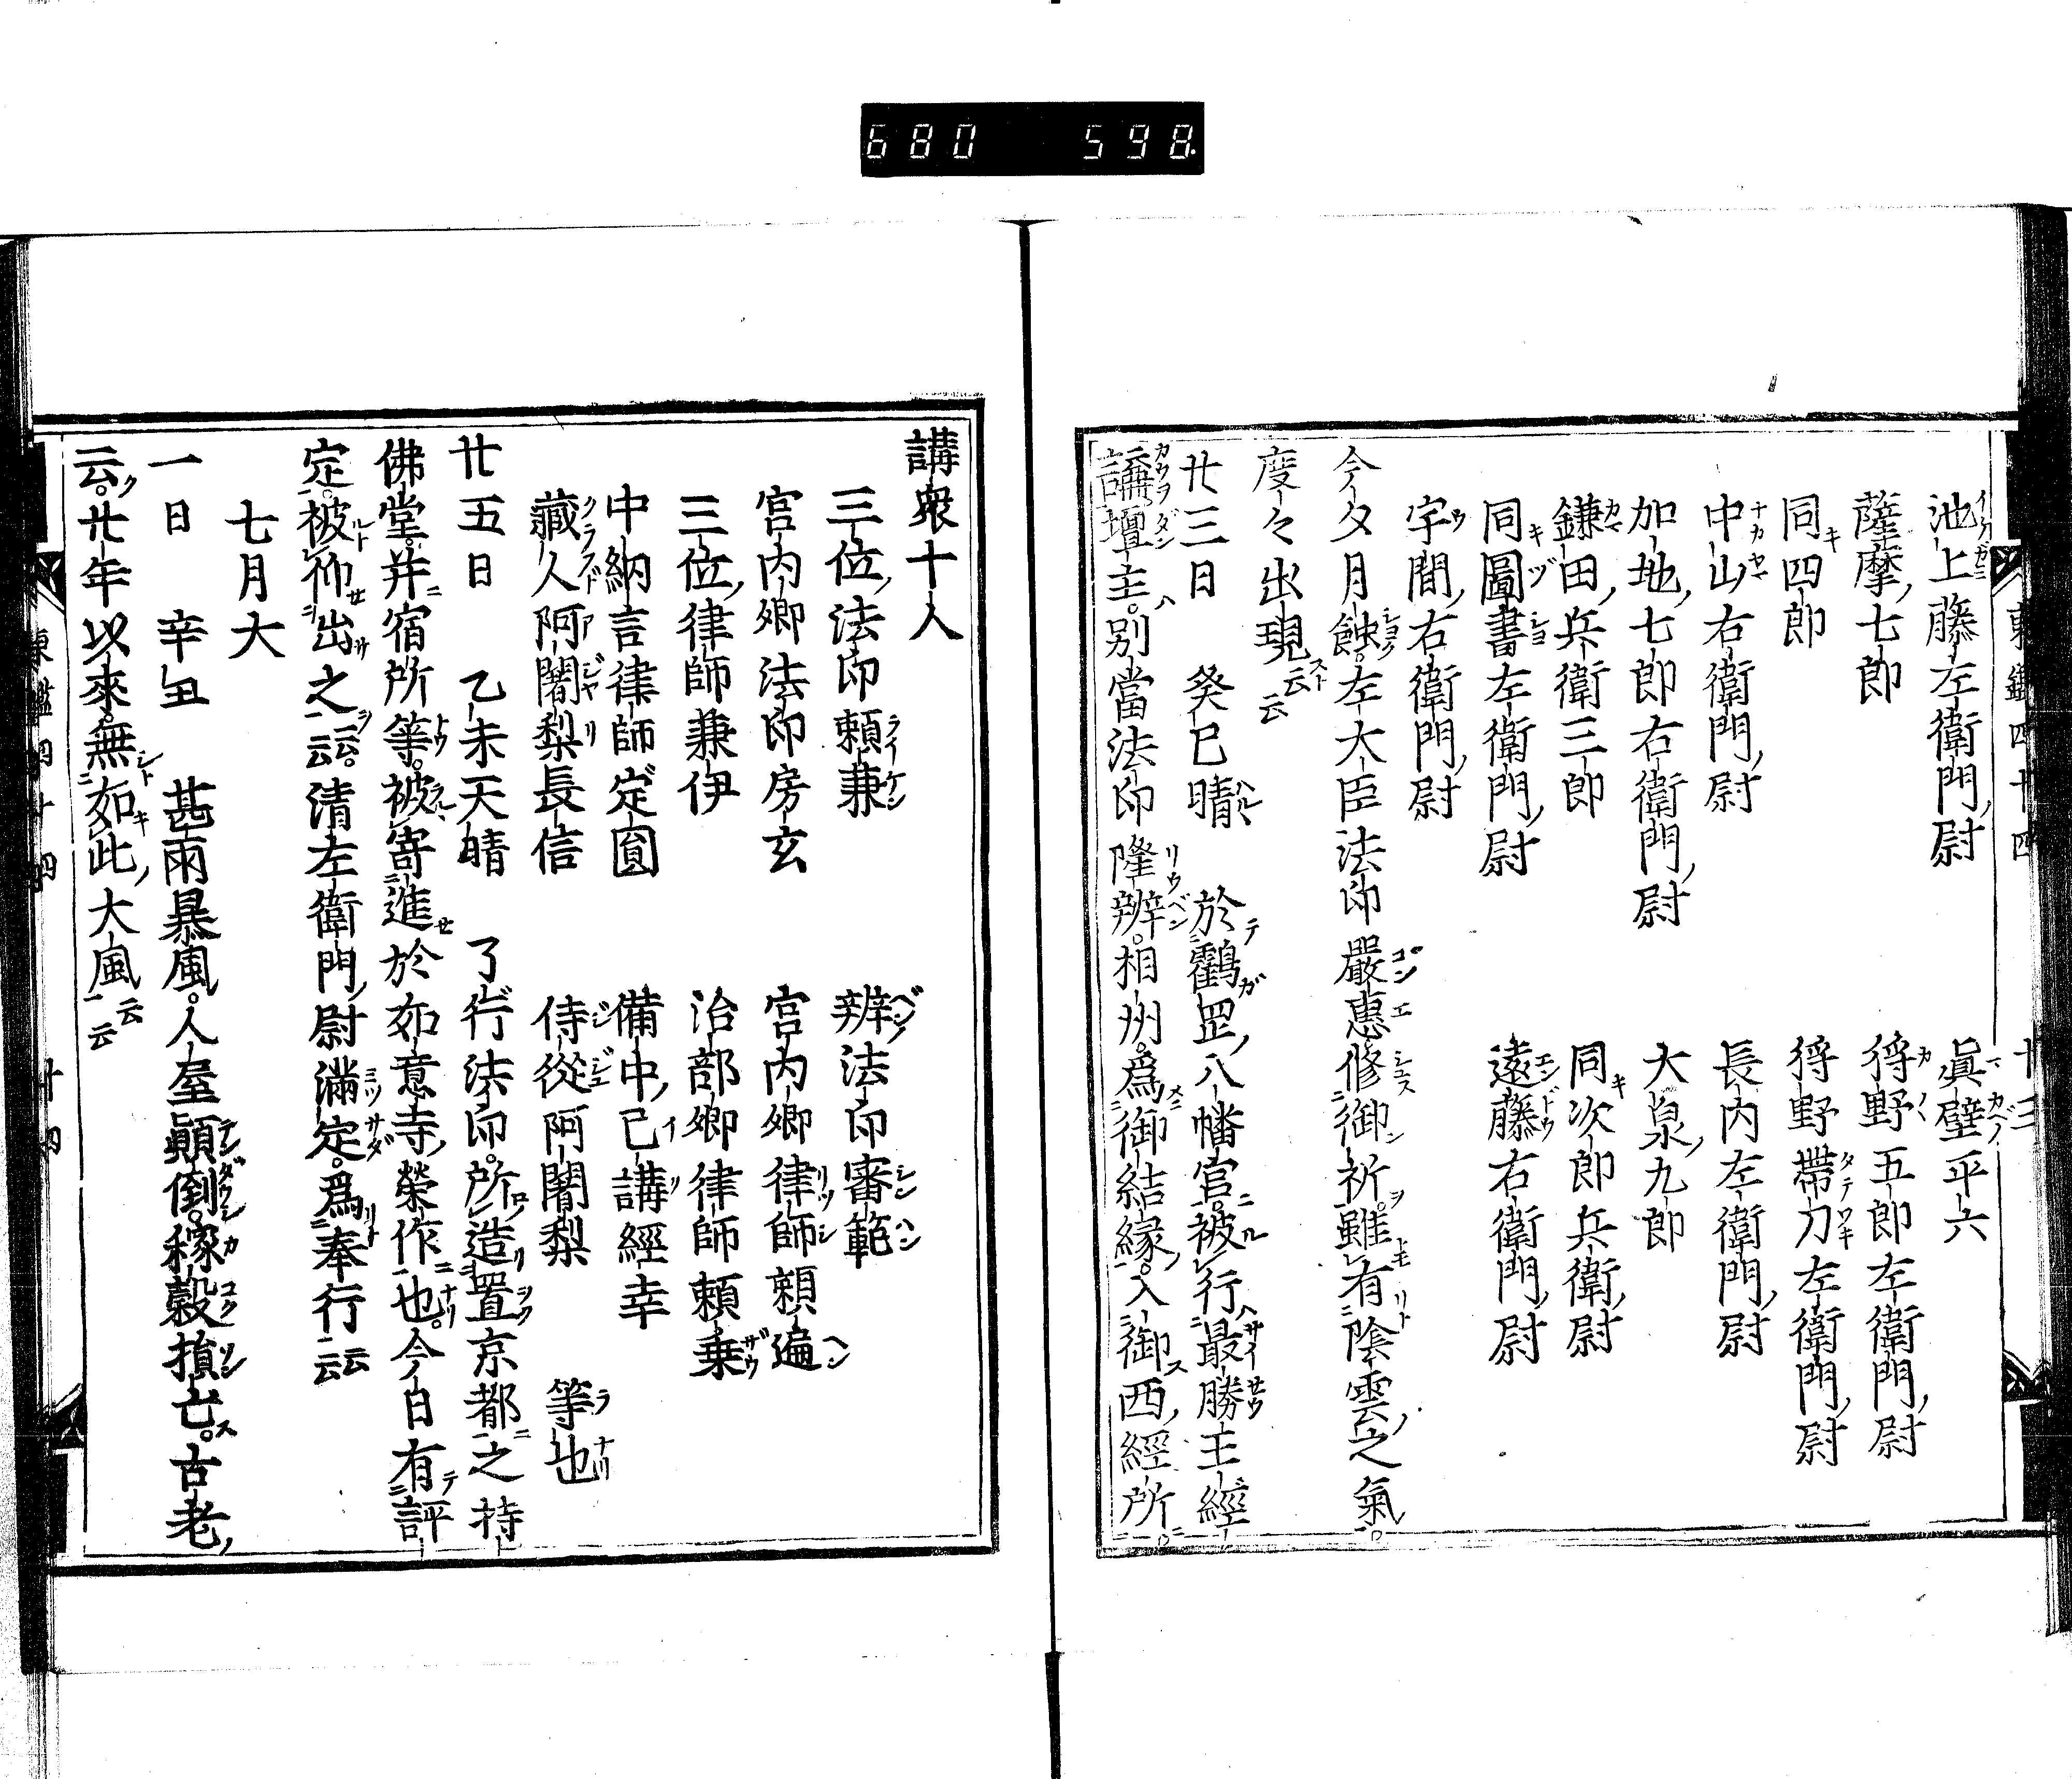 680 598
池上藤左衛門尉 眞壁平六
薩摩七郎 狩野五郎左衛門尉
同四郎 狩野帶刀左衛門尉
中山右衛門尉 長内左衛門尉
加地七郎右衛門尉 大泉九郎
鎌田兵衛三郎 同次郎兵衛尉
同圖書左衛門尉 遠藤右衛門尉
宇間右衛門尉
今夕月蝕。左大臣法印嚴惠修御祈。雖有陰雲之氣。
度々出現云云
廿三日 癸巳晴 於鶴罡八幡宮。被行最勝王經
講壇主。別當法印隆辨。相州。爲御結縁。入御西經所。
講衆十人
三位法印頼兼 辨法印審範
宮内卿法印房玄 宮内卿律師頼遍
三位律師兼伊 治部卿律師頼乗
中納言律師定圓 備中已講經幸
藏人阿闍梨長信 侍從阿闍梨 等也
廿五日 乙未天晴 了行法印。所造置京都之持
佛堂。并宿所等。被寄進於如意寺。榮作也。今日有評
定。被仰出之云云。清左衛門尉滿定。爲奉行云云
七月大
一日 辛丑 甚雨暴風。人屋顛倒。稼穀損亡。古老
云。廿年以來。無如此大風云云